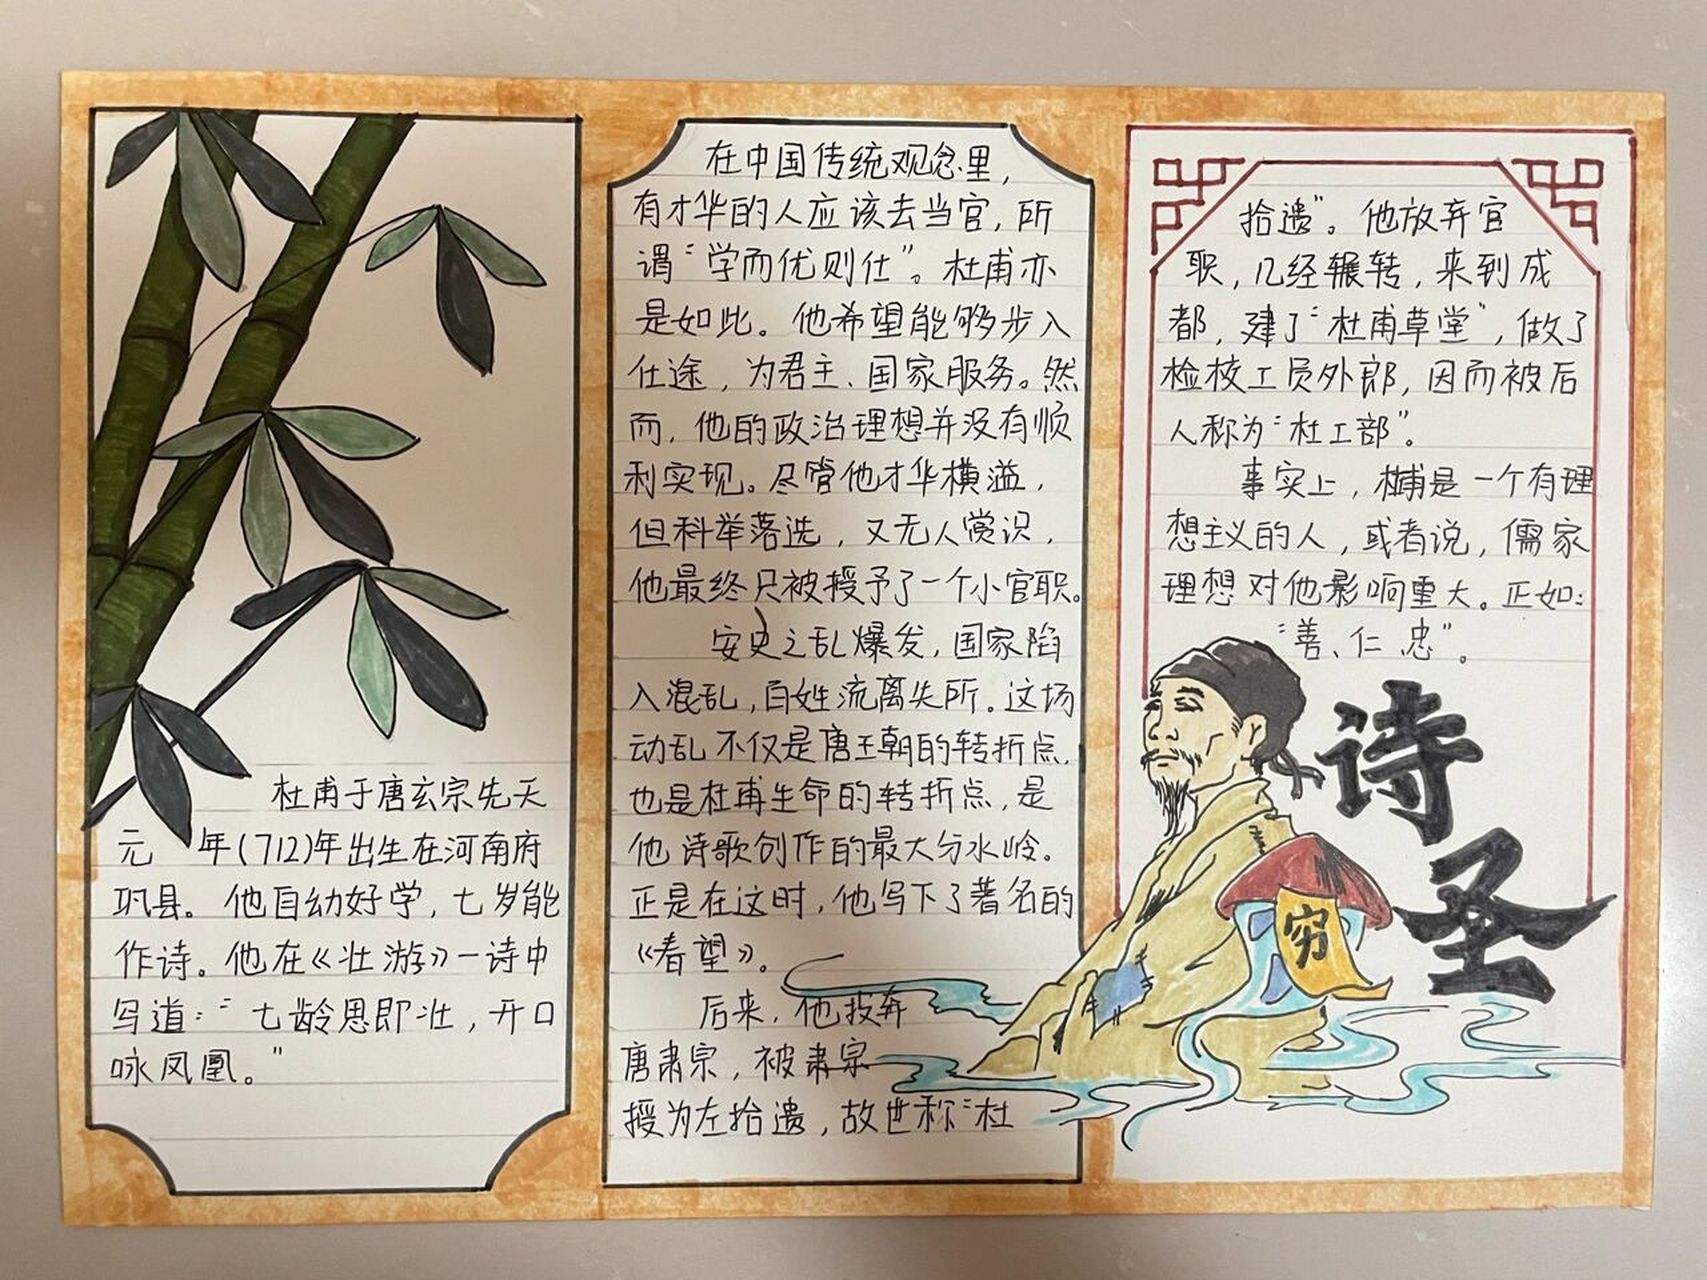 杜甫于唐玄宗先天
元 年(712)年出生在河南府
巩县。他自幼好学,七岁能
作诗。他在《壮游》一诗中
写道:"七龄思即壮,开口
咏凤凰。"
在中国传统观念里,
有才华的人应该去当官,所
谓"学而优则仕"。杜甫亦
是如此。他希望能够步入
仕途,为君主、国家服务。然
而,他的政治理想并没有顺
利实现。尽管他才华横溢,
但科举落选,又无人赏识,
他最终只被授予了一个小官职。
安史之乱爆发,国家陷
入混乱,百姓流离失所。这场
动乱不仅是唐王朝的转折点,
也是杜甫生命的转折点,是
他诗歌创作的最大分水岭。
正是在这时,他写下了著名的
《春望》。
后来,他投奔
唐肃宗,被肃宗
授为左拾遗,故世称"杜
拾遗"。他放弃官
职,几经辗转,来到成
都,建了"杜甫草堂",做了
检校工员外郎,因而被后
人称为"杜工部"。
事实上,杜甫是一个有理
想主义的人,或者说,儒家
理想对他影响重大。正如:
"善、仁、忠"。
诗
圣
穷